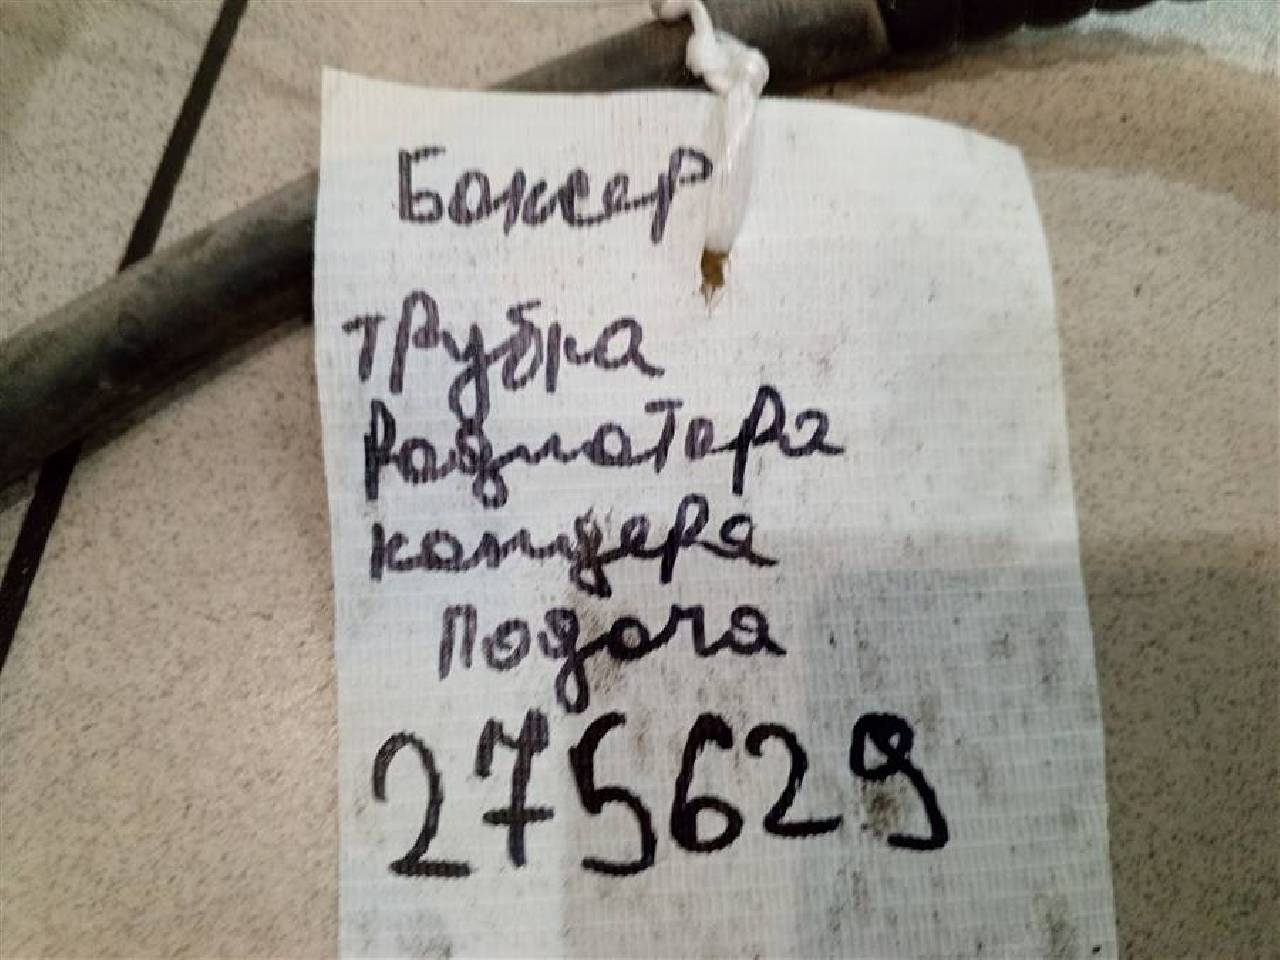 Боксер
трубка
радиатора
кондера
подача
275629